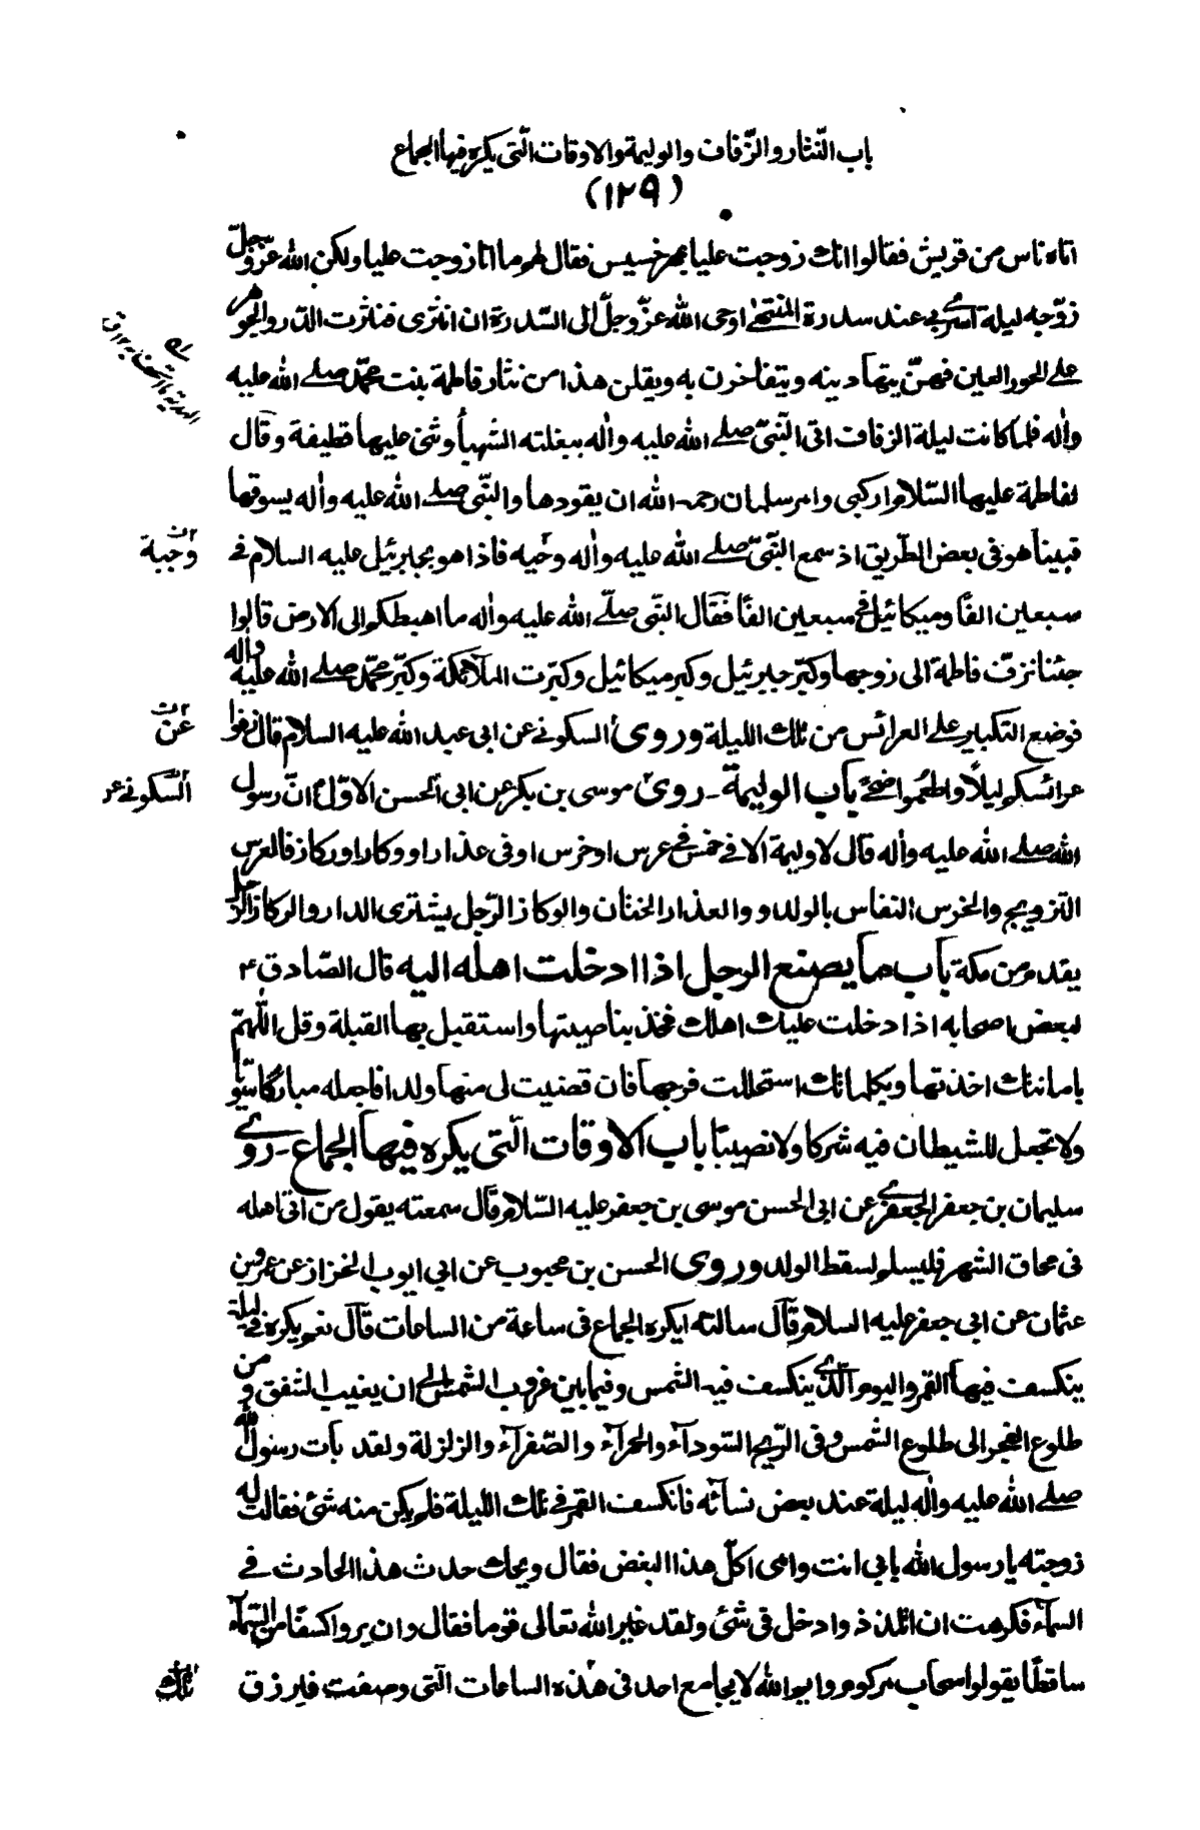 باب النّثار والزّفاف والوليمة والاوقات الّتى يكره فيها الجماع
(١٢٩)
اتاه ناس من قريش فقالوا انك زوجت عليا بمهر خسيس فقال لهم ما انا زوجت عليا ولكن الله عزّ وجلّ
زوّجه ليلة اسرى بى عند سدرة المنتهى اوحى الله عزّ وجلّ الى السّدرة ان انثرى فنثرت الدّر والجوهر
على الحور العين فهنّ يتهادينه ويتفاخرن به ويقلن هذا من نثار فاطمة بنت محمّد صلى الله عليه
واله فلما كانت ليلة الزفاف اتى النّبىّ صلى الله عليه واله ببغلته الشهبآ وثنى عليها قطيفة وقال
لفاطمة عليها السّلام اركبى وامر سلمان رحمه الله ان يقودها والنّبّى صلى الله عليه واله يسوقها
فبينا هو فى بعض الطّريق اذ سمع النّبىّ صلى الله عليه واله وجبة فاذا هو بجبرئيل عليه السلام فى
وجبة
سبعين الفًا وميكائيل فى سبعين الفًا فقال النبّى صلّى الله عليه واله ما اهبطكم الى الارض قالوا
جئنا نزفّ فاطمة الى زوجها وكبّر جبرئيل وكبر ميكائيل وكبّرت الملآئكة وكبّر محمّد صلى الله عليه واله
فوضع التكبير على العرائس من تلك الليلة وروى السكونى عن ابى عبد الله عليه السلام قال زفوا
عن
عرائسكم ليلًا واطعموا ضحىً باب الوليمة ـ روى موسى بن بكر عن ابى الحسن الاوّل ع انّ رسول
السّكونى عن
الله صلى الله عليه واله قال لا وليمة الا فى خمس فى عرس او خرس او فى عذار او وكار او ركاز فالعرس
التزويج والخرس النفاس بالولد و والعذار الختان والوكاز الرّجل يشترى الدار والركاز الرّجل
يقدم من مكة باب ما يصنع الرجل اذا ادخلت اهله اليه قال الصّادق ع
لبعض اصحابه اذا دخلت عليك اهلك فخذ بناصيتها واستقبل بها القبلة وقل اللّهمّ
بامانتك اخذتها وبكلماتك استحللت فرجها فان قضيت لى منها ولدا فاجعله مباركًا تقيًّا
ولا تجعل للشيطان فيه شركا ولا نصيبًا باب الاوقات الّتى يكره فيها الجماع ـ روى
سليمان بن جعفر الجعفرى عن ابى الحسن موسى بن جعفر عليه السّلام قال سمعته يقول من اتى اهله
فى محاق الشهر فليسلم لسقط الولد وروى الحسن بن محبوب عن ابى ايوب الخزاز عن عمرو بن
عثمان عن ابى جعفر عليه السلام قال سالته ايكره الجماع فى ساعة من الساعات قال نعم يكره فى ليلة
ينكسف فيها القمر واليوم الّذى ينكسف فيه الشمس وفيما بين غروب الشمس الى ان يغيب الشفق ومن
طلوع الفجر الى طلوع الشمس وفى الرّيح السّودآء والحمرآء والصّفرآء والزلزلة ولقد بات رسول الله
صلى الله عليه واله ليلة عند بعض نسآئه فانكسف القمر فى تلك الليلة فلم يكن منه شئ فقالت له
زوجته يا رسول الله بابى انت وامى اكلّ هذا البغض فقال ويحك حدث هذا الحادث فى
السمآء فكرهت ان اتلذذ وادخل فى شئ ولقد عير الله تعالى قوما فقال وان يروا كسفًا من السّمآء
ساقطًا يقولوا سحاب مركوم وايم الله لا يجامع احد فى هذه الساعات الّتى وصفت فيرزق
تلك